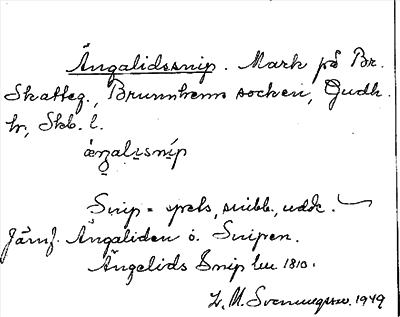 Ängalidssnip. Mark på Br.
Skatteg., Brunnhems socken, Gudh.
hd, Skb. l.
Snip = spets, snibb, udde.
Jämf. Ängaliden o. Snipen.
Ängelids Snip lm 1810.
L. M. Svenungsson. 1949